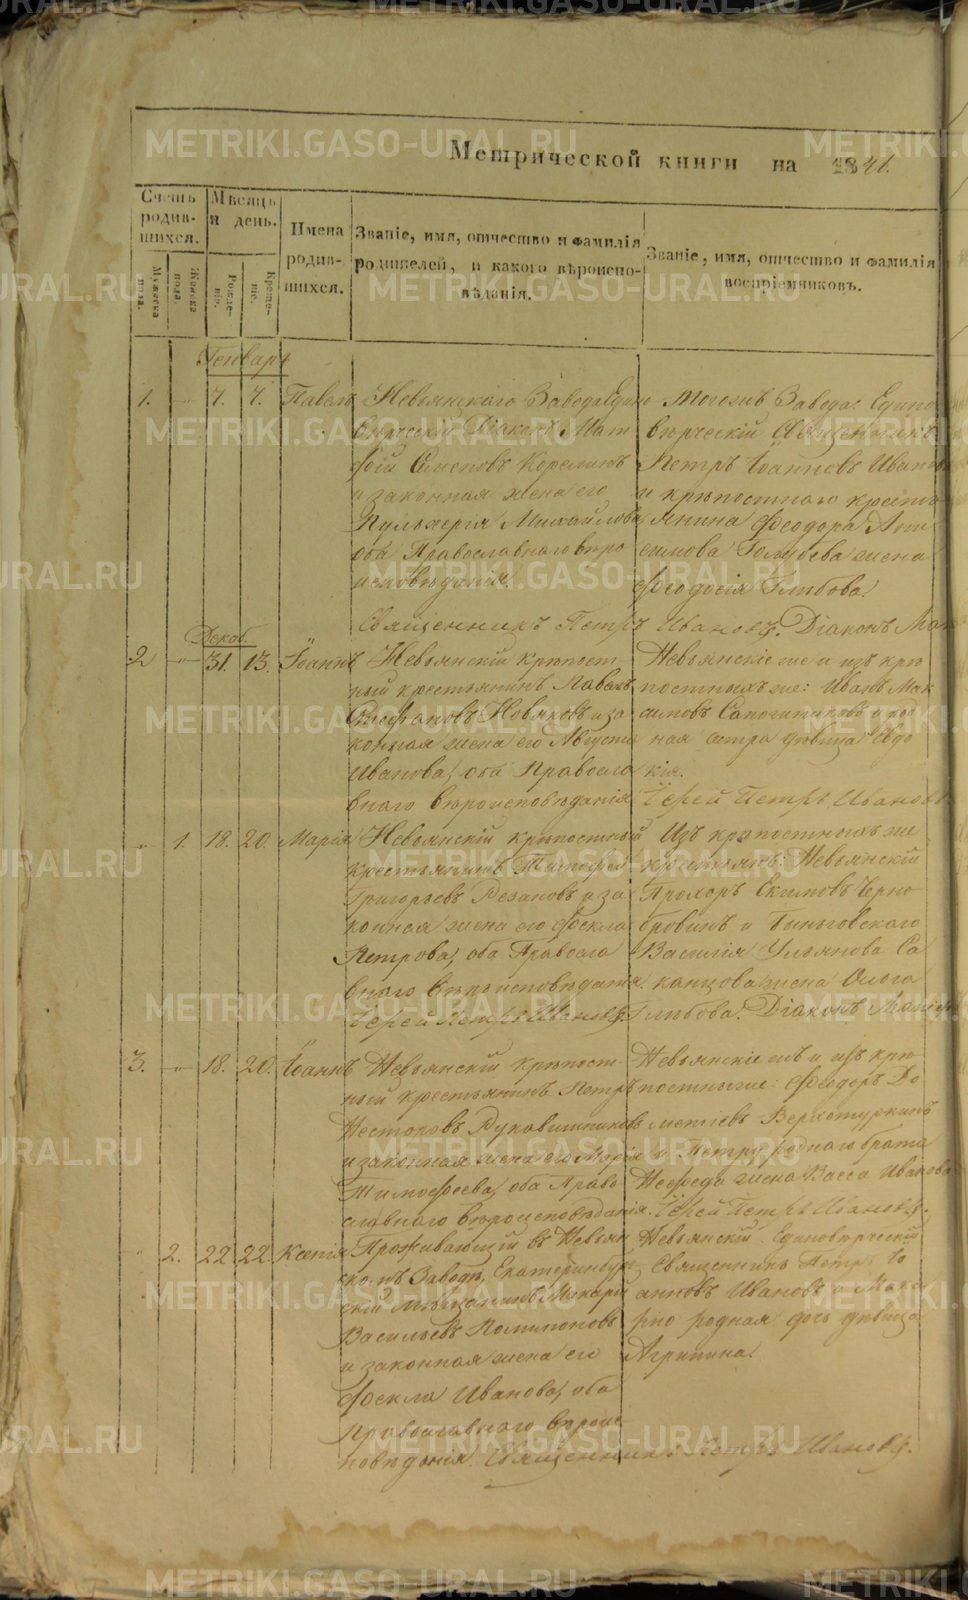 METRIKI.GASO-URAL.RU
Метрической книги на 1841.
Счетъ родив-шихся.
Мужеска пола.
Женска пола.
Мѣсяцъ и день.
Рожде-нія.
Креще-нія.
Имена родив-шихся.
Званіе, имя, отчество и фамилія родителей, и какого вѣроиспо-вѣданія.
Званіе, имя, отчество и фамилія воспріемниковъ.
Генварь
1. 7. 7. Павелъ
Невьянскаго Завода Едино
вѣрческій Діаконъ Мат
фій Семеновъ Корелинъ
и законная жена его
Пульхерія Михайлова
оба Православнаго вѣро
исповѣданія.
Завода: Едино
вѣрческій Священникъ
Петръ Іоанновъ Иванов
и крѣпостнаго кресть
янина Феодора Ани
симова жена
Феодосія Глѣбова.
Священникъ Петръ Ивановъ. Діаконъ
Декаб.
2 31. 13. Іоаннъ
Невьянскій крѣпост
ный крестьянинъ Павелъ
Стефановъ Новяковъ и за
конная жена его Августа
Иванова, оба Правосла
внаго вѣроисповѣданія
Невьянскіе же и изъ крѣ
постныхъ же: Иванъ Мак
симовъ Сапожниковъ и род
ная сестра дѣвица Евдо
кія.
Іерей Петръ Ивановъ
1. 18. 20. Марія
Невьянскій крѣпостный
крестьянинъ Тимофей
Григорьевъ Резановъ и за
конная жена его Фекла
Петрова, оба Правосла
внаго вѣроисповѣданія
Изъ крѣпостныхъ же
крестьянъ: Невьянскій
Прохоръ Екимовъ Черно
бровинъ и Быньговскаго
Василія Ульянова Са
канцова жена Ольга
Глѣбова.
Іерей Петръ Ивановъ. Діаконъ
3. 18. 20. Іоаннъ
Невьянскій крѣпост
ный крестьянинъ Петръ
Несторовъ Рукавишниковъ
и законная жена его Марія
Тимофеева, оба Право
славнаго вѣроисповѣданія.
Невьянскіе же и изъ крѣ
постныхъ же: Феодоръ До
ментіевъ Верхотуркинъ
и Петру роднаго брата
Нефеда жена Васса Иванова
Іерей Петръ Ивановъ.
2. 22. 22. Ксенія
Проживающій въ Невьян
скомъ Заводѣ, Екатеринбург
скій мѣщанинъ Макарій
Васильевъ Филимоновъ
и законная жена его
Фекла Иванова, оба
Православнаго вѣроис
повѣданія.
Невьянскій Единовѣрческій
Священникъ Петръ Іо
анновъ Ивановъ и Мака
рію родная дочь дѣвица
Агрипина.
Священникъ Петръ Ивановъ.